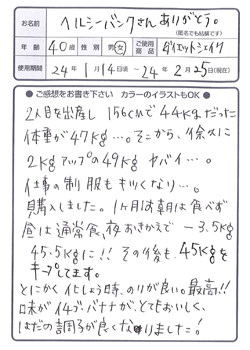 お名前 ヘルシーバンクさんありがとう。
(匿名でも結構です)
年齢 40歳 性別 男・女 ご使用商品 ダイエットシェイク
使用期間 24年1月14日頃～24年2月25日(現在)
●ご感想をお書き下さい カラーのイラストもOK●
2人目を出産し156cmで44kgだった
体重が47kg…。そこから、徐々に
2kgアップの49kg ヤバイ…。
仕事の制服もキツくなり…。
購入しました。1ヶ月は朝は食べず
昼は通常食、夜おきかえで－3.5kg
45.5kgに!!その後も、45kgを
キープしてます。
とにかく化しょう時、のりが良い。最高!!
味がイチゴ・バナナが、とてもおいしく、
はだの調子が良くなりました!